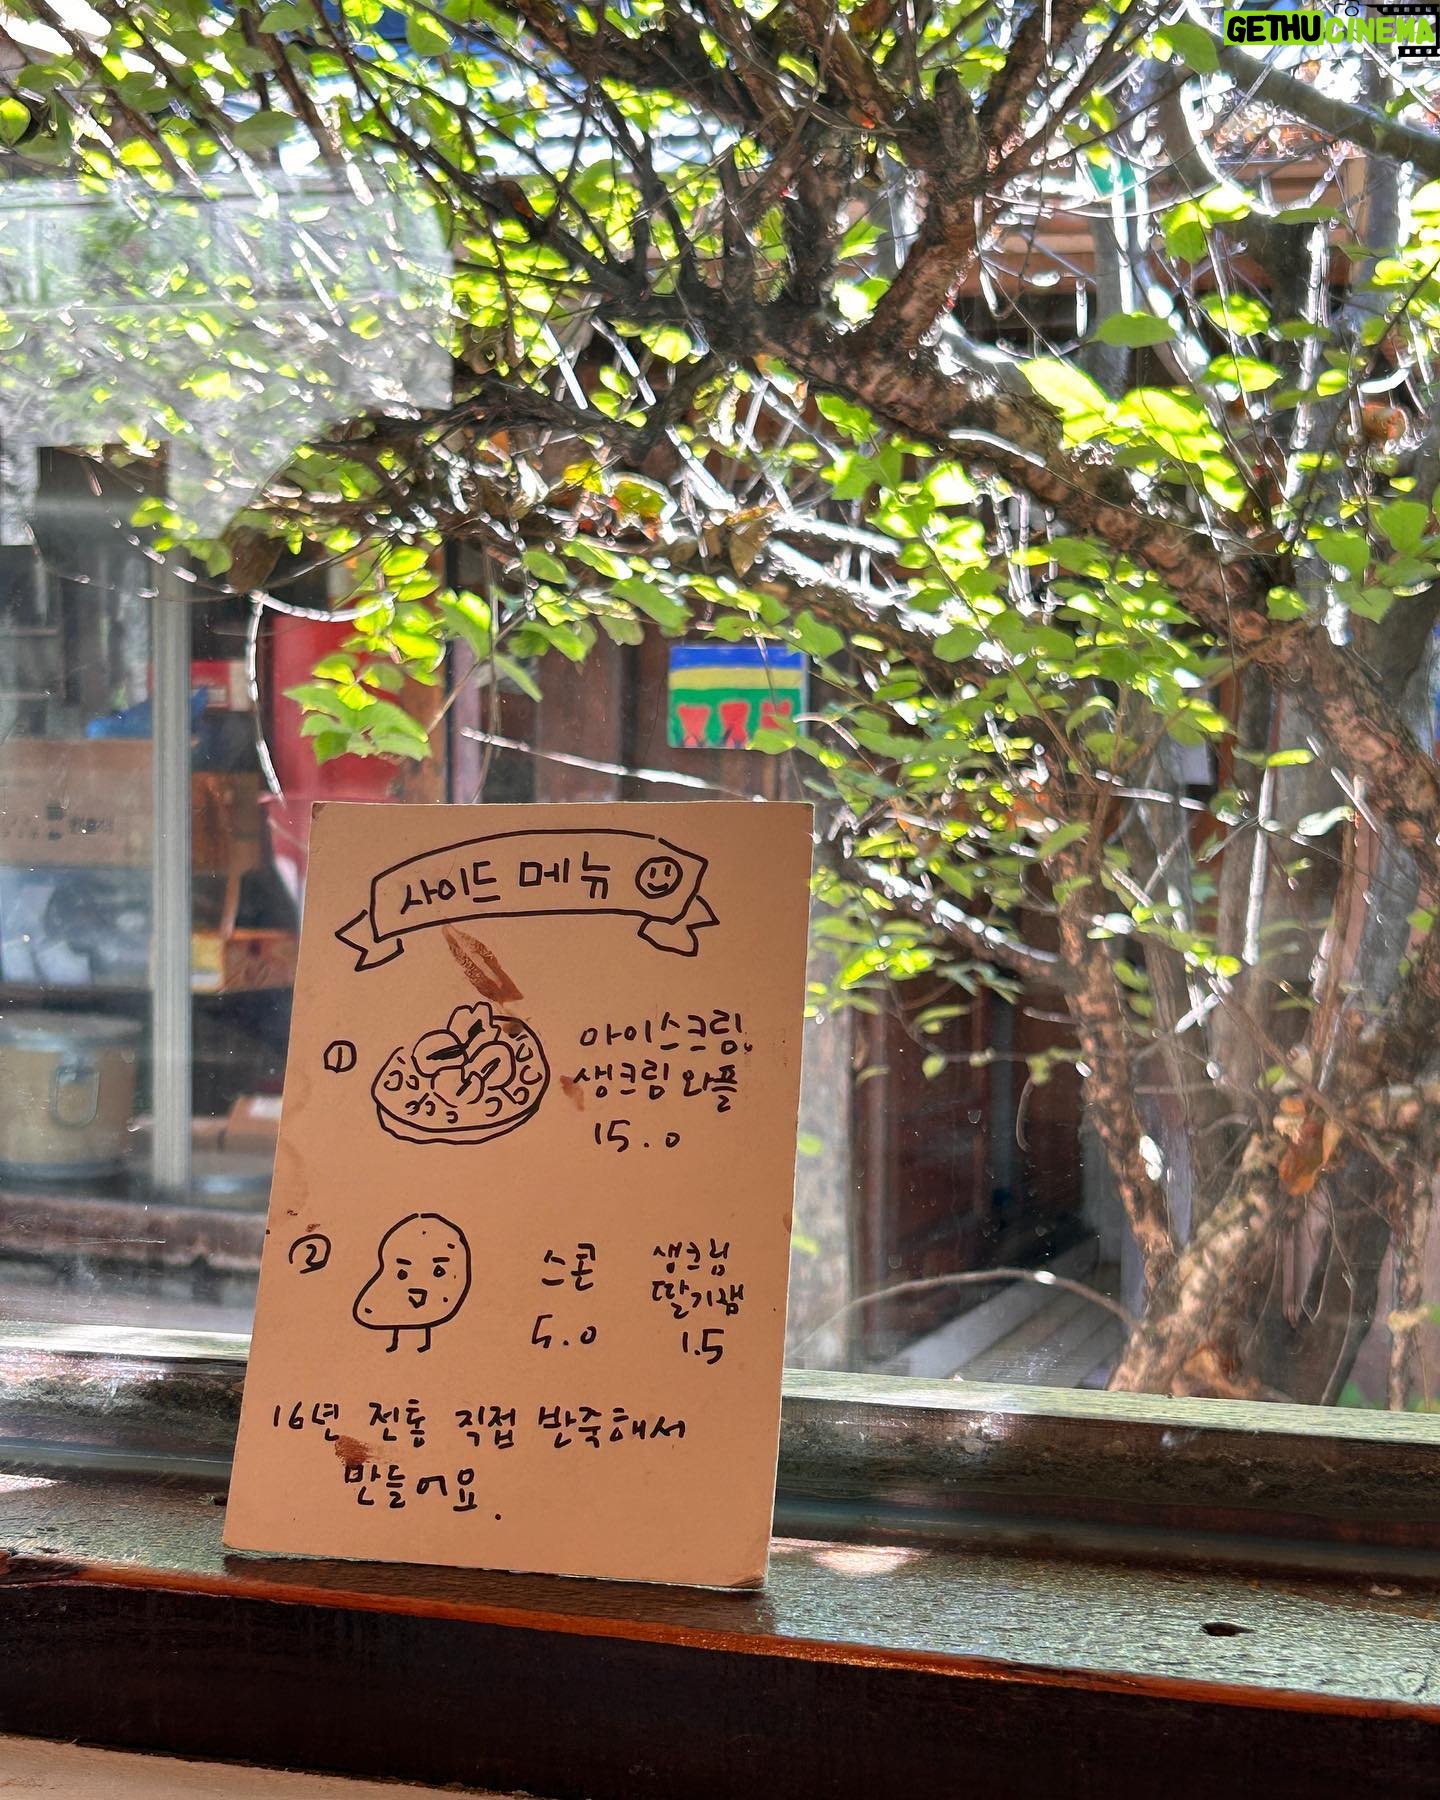 GETHUCINEMA
사이드 메뉴
① 아이스크림,
생크림 와플
15.0
② 스콘
5.0
생크림
딸기잼
1.5
16년 전통 직접 반죽해서
만들어요.